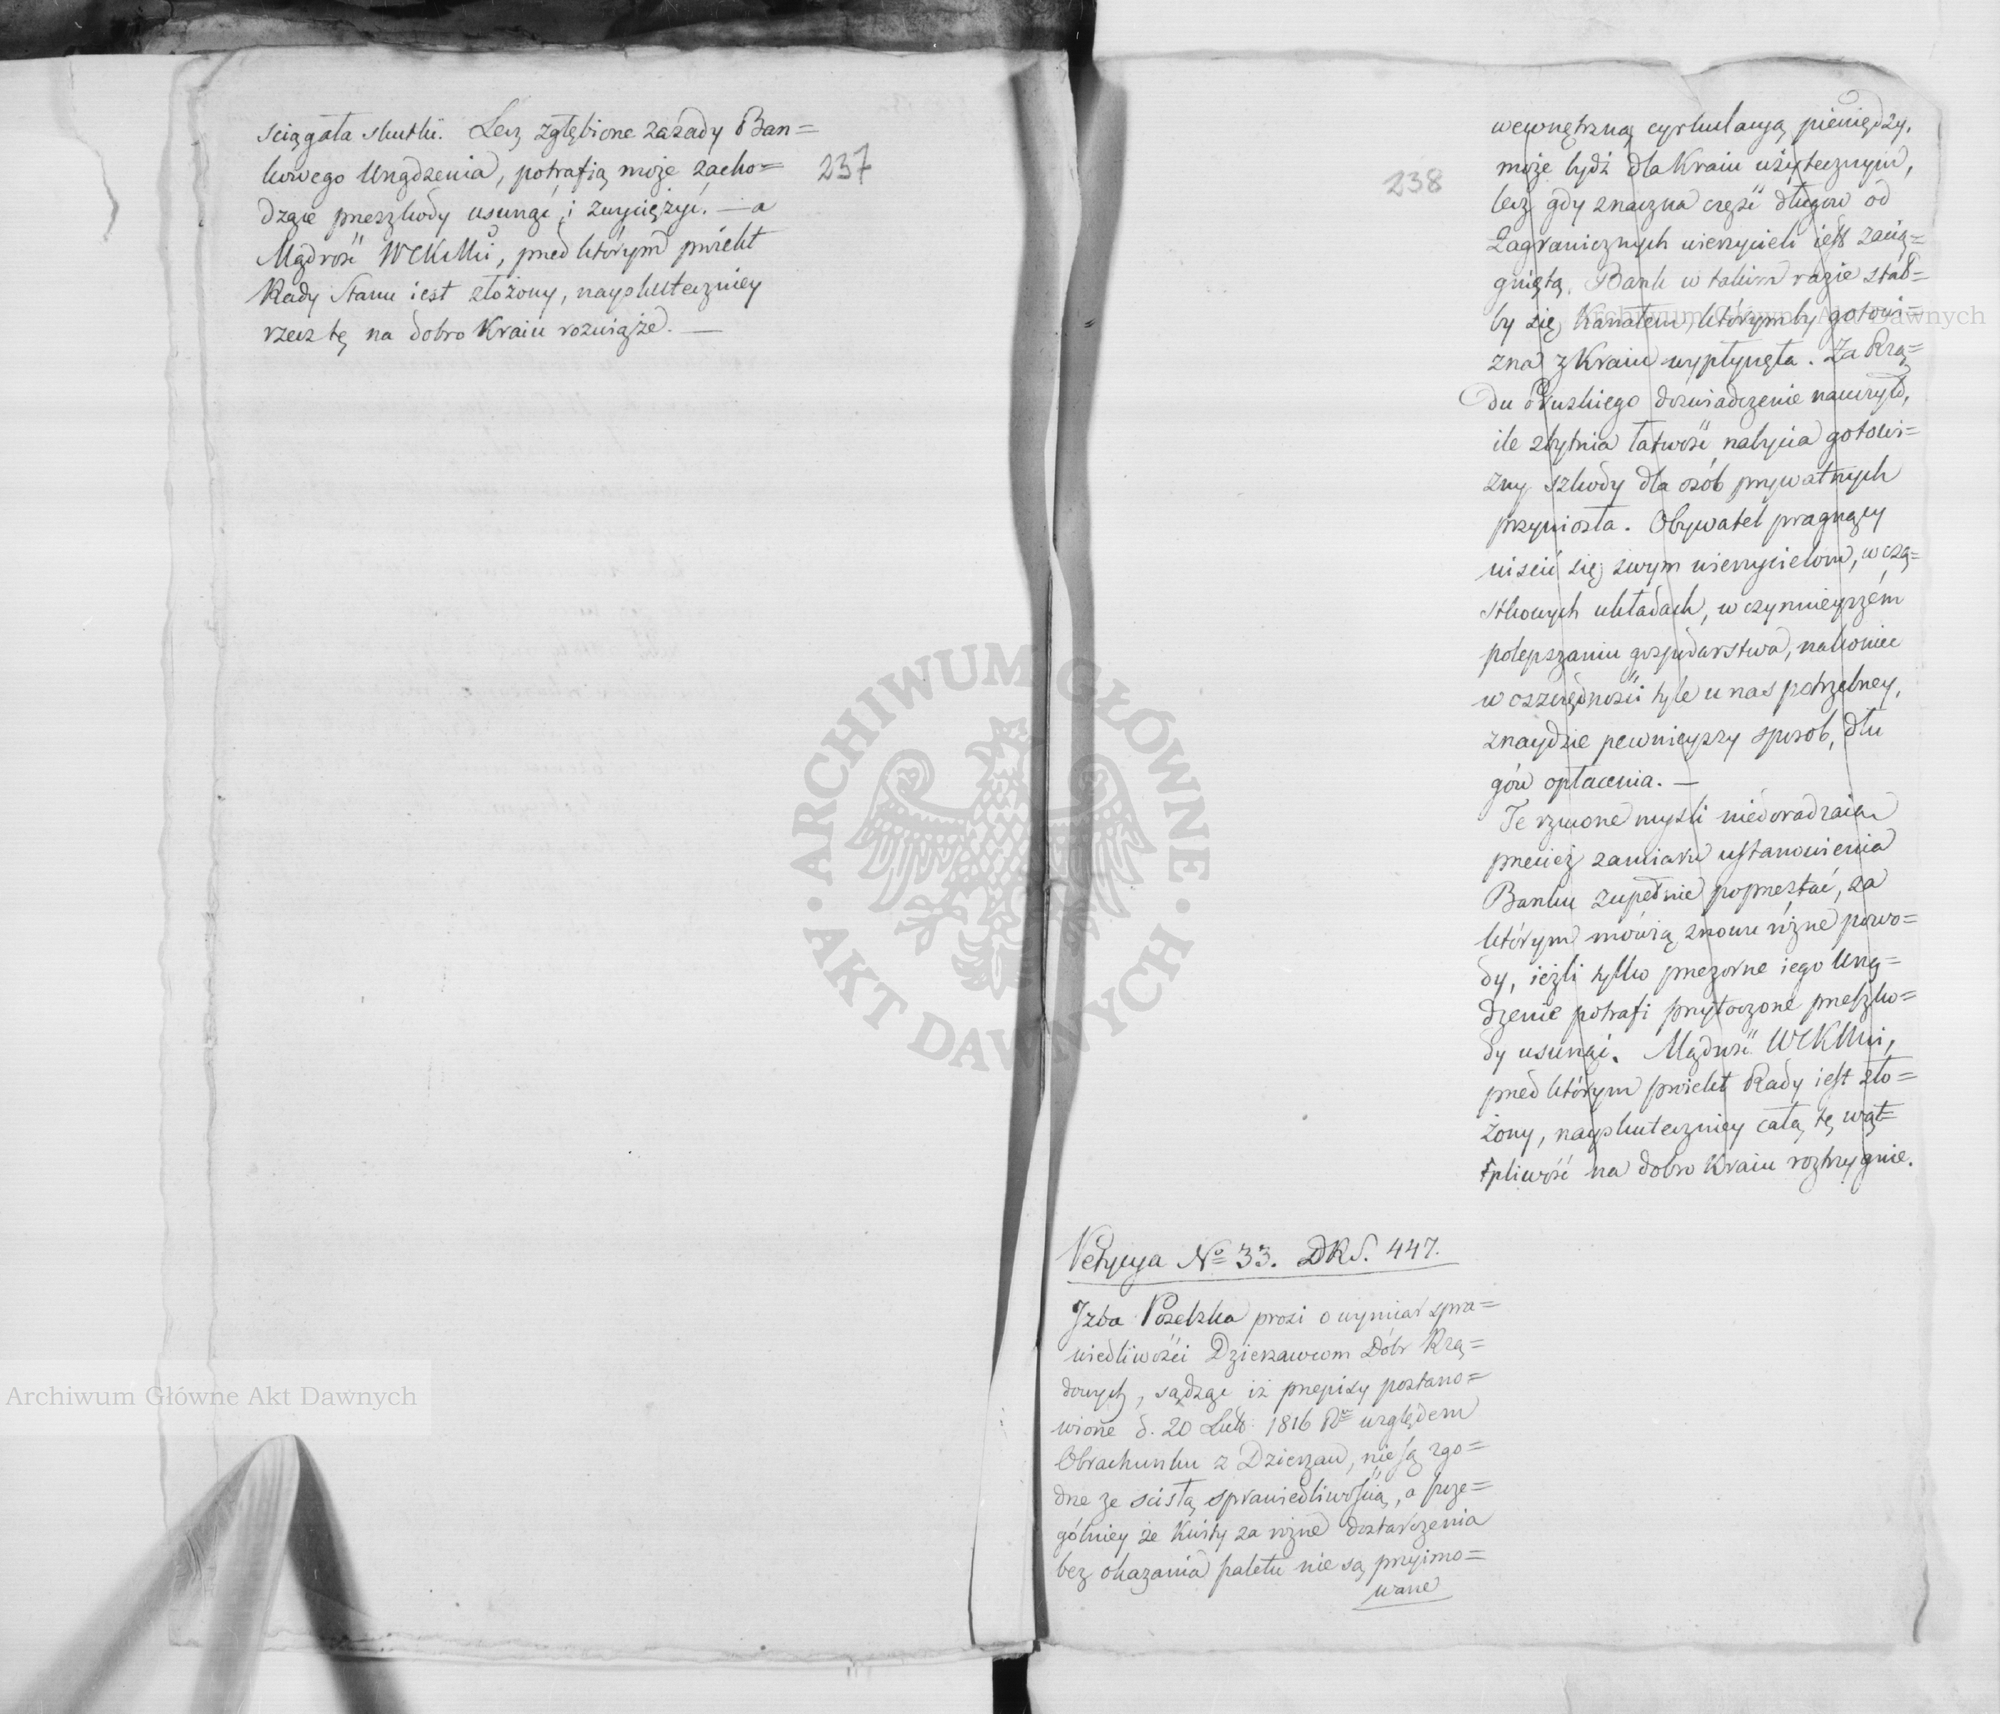 sciągała skutki. Lecz zgłębione zasady Ban=
kowego Urządzenia, potrafią może zacho=
dzące przeszkody usunąć, i zwyciężyć. — a
Mądrość WCKMci, przed którym proiekt
Rady Stanu iest złożony, nayskuteczniey
rzecz tę na dobro Kraiu rozwiąże. —
237
238
wewnętrzną cyrkulacyą pieniędzy,
może bydź dla Kraiu użytecznym,
lecz gdy znaczna część długów od
Zagranicznych wierzycieli iest zacią=
gnięta, Bank w takim razie stał=
by się Kanałem, którymby gotowi=
zna z Kraiu wypłynęła. Za Rzą=
du Pruskiego doświadczenie nauczyło,
ile zbytnia łatwość nabycia gotowi=
zny szkody dla osób prywatnych
przyniosła. Obywatel pragnący
uiścić się swym wierzycielom, w czą=
stkowych układach, w czynnieyszém
polepszaniu gospodarstwa, nakoniec
w oszczędności tyle u nas potrzebney,
znaydzie pewnieyszy sposób, dłu
gów opłacenia. —
Te rzucone myśli niedoradzaią
przecież zamiaru ustanowienia
Banku zupełnie poprzestać, za
którym mówią znowu różne powo=
dy, ieżli tylko przezorne iego Urzą=
dzenie potrafi przytoczone przeszko=
dy usunąć. Mądrość WCKMci,
przed którym proiekt Rady iest zło=
żony, nayskuteczniey całą tę wąt=
pliwość na dobro Kraiu roztrzygnie.
Petycya No 33. DKS. 447.
Izba Poselska prosi o wymiar spra=
wiedliwości Dzierzawcom Dóbr Rzą=
dowych, sądząc iż przepisy postano=
wione d. 20 Lut: 1816 Ru względem
Obrachunku z Dzierzaw, nie są zgo=
dne ze scisłą sprawiedliwością, a szcze=
gólniey że Kwity za różne dostarczenia
bez okazania paletu nie są przyimo=
wane
Archiwum Główne Akt Dawnych
Archiwum Główne Akt Dawnych
ARCHIWUM GŁÓWNE · AKT DAWNYCH ·